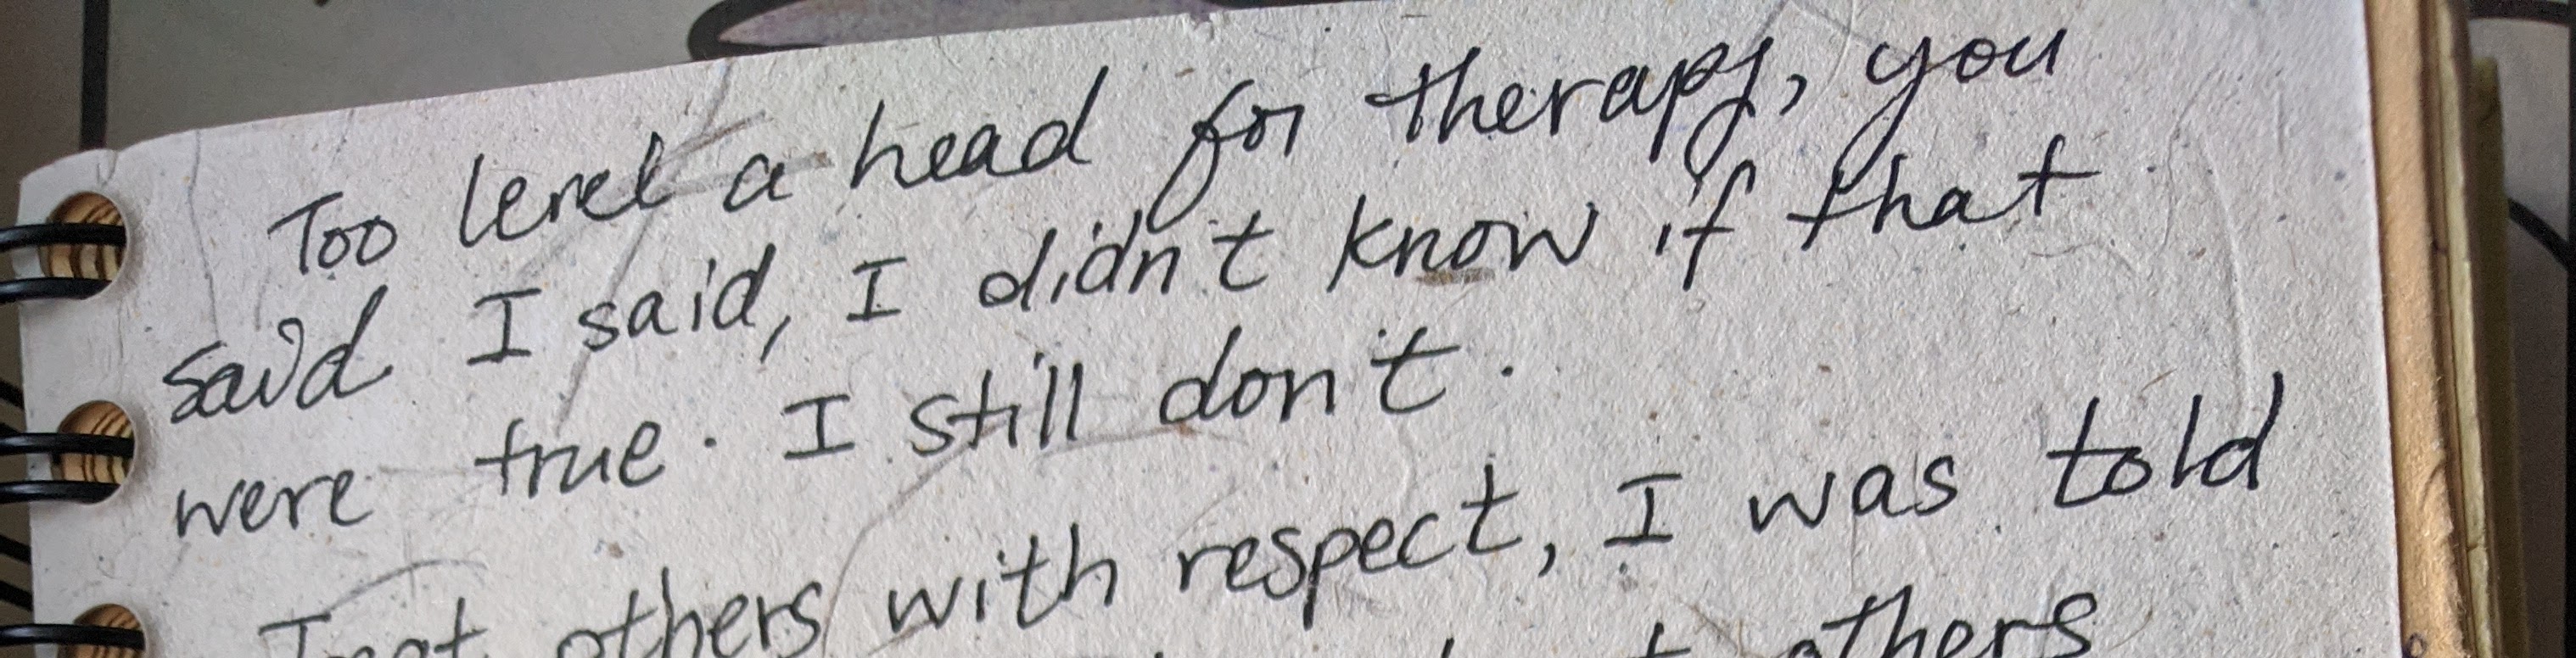 Too level a head for therapy, you
said I said, I didn't know if that
were true. I still don't.
Treat others with respect, I was told
others